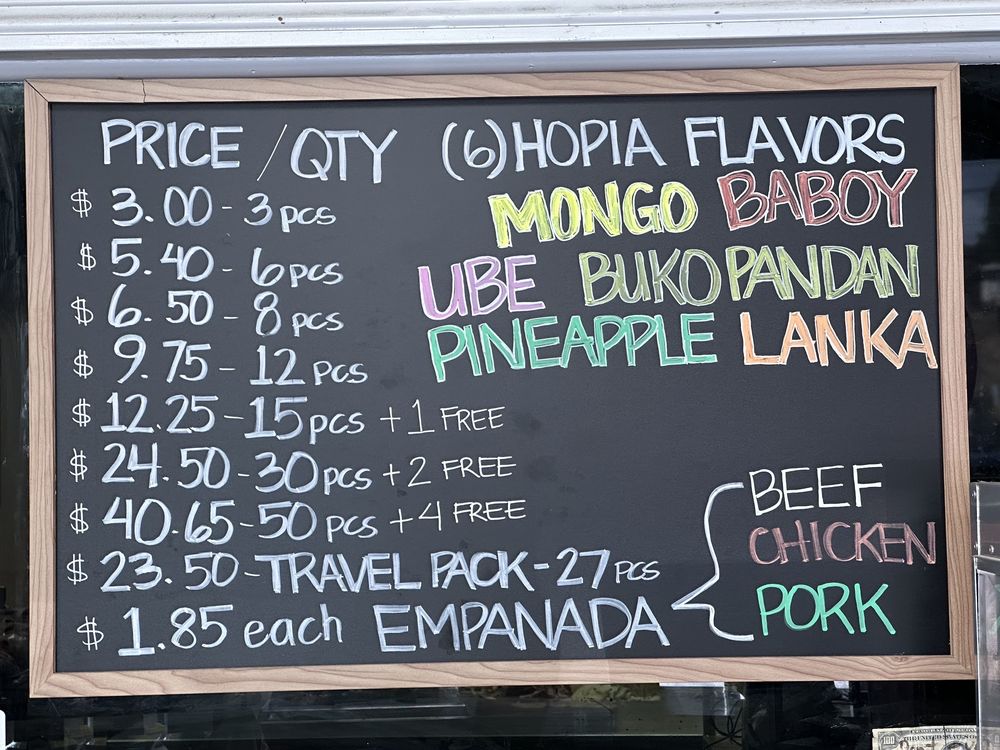 PRICE / QTY
$ 3.00 - 3 pcs
$ 5.40 - 6 pcs
$ 6.50 - 8 pcs
$ 9.75 - 12 pcs
$ 12.25 - 15 pcs + 1 FREE
$ 24.50 - 30 pcs + 2 FREE
$ 40.65 - 50 pcs + 4 FREE
$ 23.50 - TRAVEL PACK - 27 pcs
$ 1.85 each EMPANADA
(6) HOPIA FLAVORS
MONGO BABOY
UBE BUKO PANDAN
PINEAPPLE LANKA
BEEF
CHICKEN
PORK
100